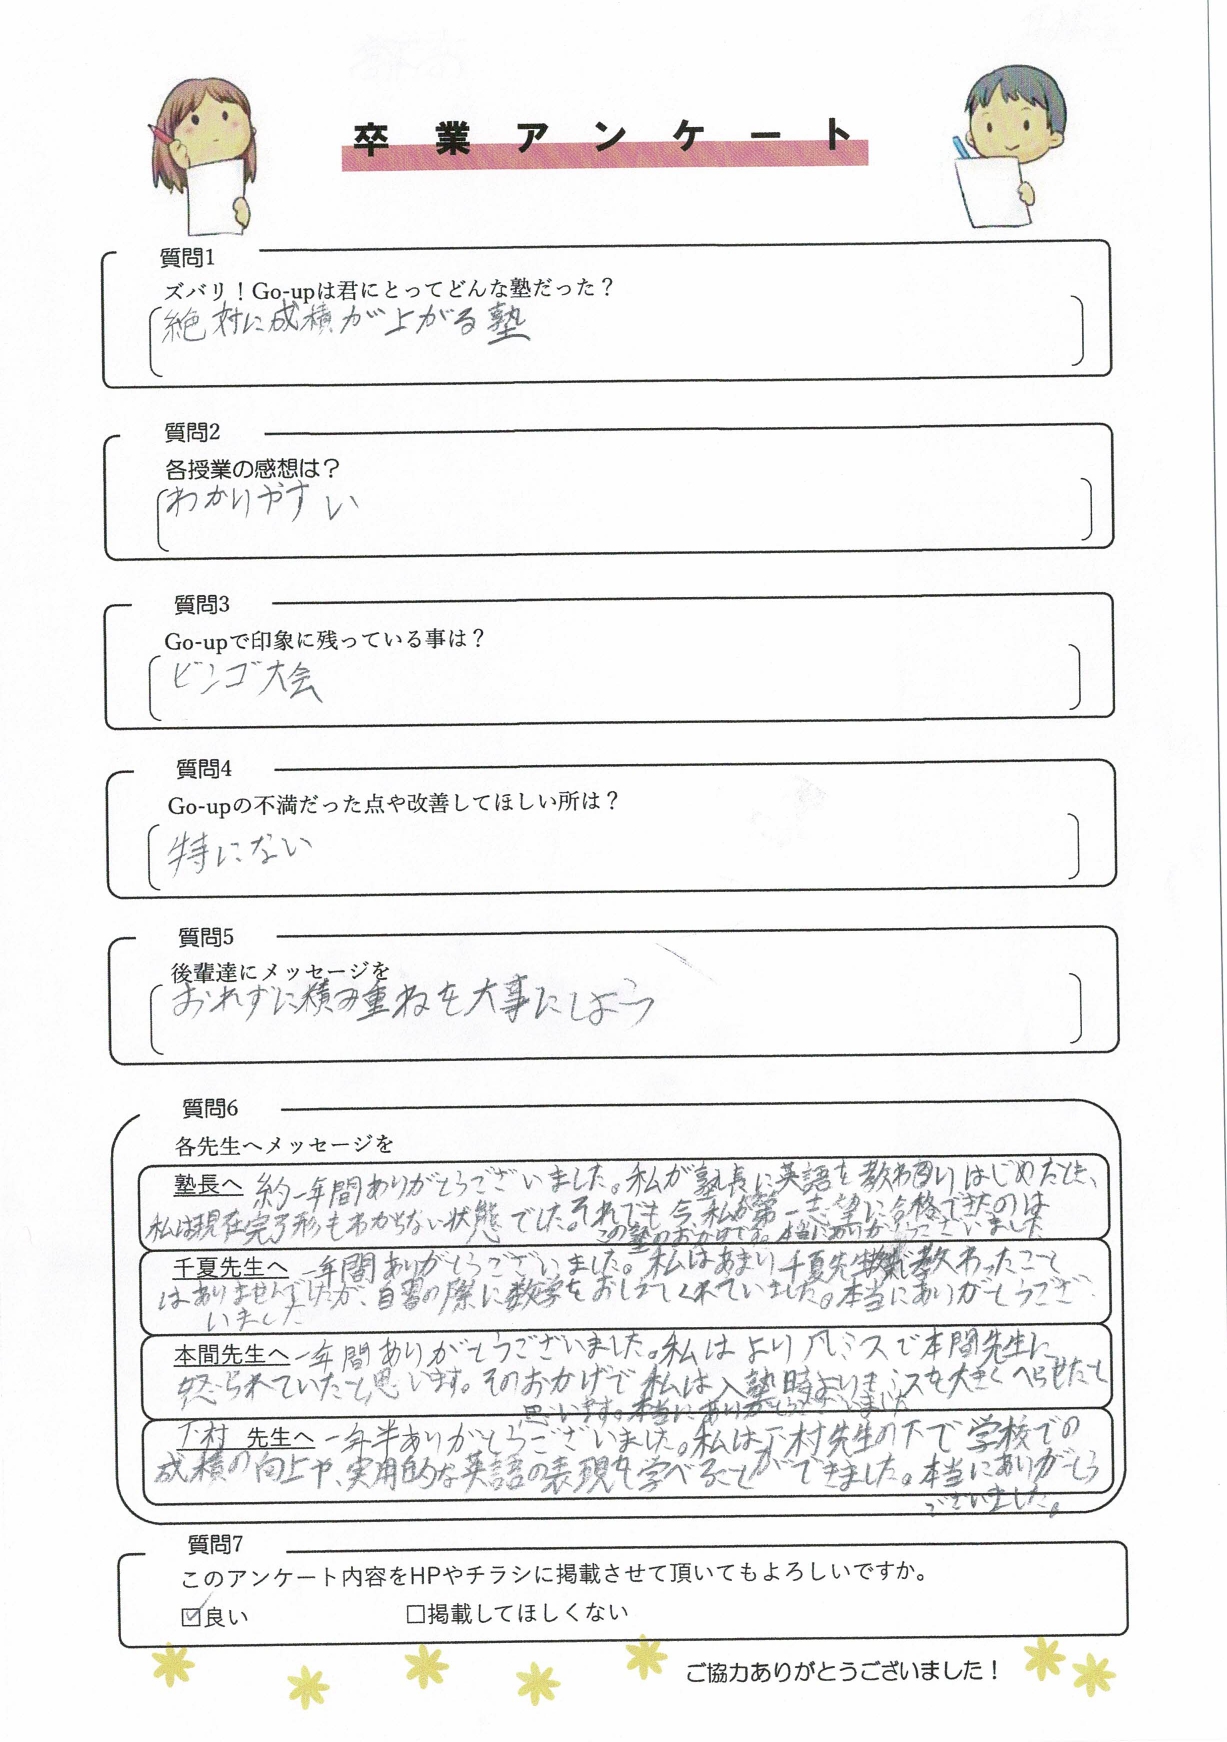 卒業アンケート
質問1
ズバリ！Go-upは君にとってどんな塾だった？
絶対に成積が上がる塾
質問2
各授業の感想は？
わかりやすい
質問3
Go-upで印象に残っている事は？
ビンゴ大会
質問4
Go-upの不満だった点や改善してほしい所は？
特にない
質問5
後輩達にメッセージを
おれずに積み重ねを大事にしよう
質問6
各先生へメッセージを
塾長へ 約一年間ありがとうございました。私が塾長に英語を教わりはじめたとき、
私は現在完了形もわからない状態でした。それでも今、私が第一志望に合格できたのは
この塾のおかげです。本当にありがとうございました
千夏先生へ 一年間ありがとうございました。私はあまり千夏先生に教わったこと
はありませんでしたが、自習の際に数学をおしえてくれていました。本当にありがとうござ
いました
本間先生へ 一年間ありがとうございました。私はより凡ミスで本間先生に
怒られていたと思います。そのおかげで私は入塾時よりもミスを大きくへらせたと
思います。本当にありがとうございました
下村 先生へ 一年半ありがとうございました。私は下村先生の下で学校での
成積の向上や、実用的な英語の表現を学べることができました。本当にありがとう
ございました。
質問7
このアンケート内容をHPやチラシに掲載させて頂いてもよろしいですか。
☑良い □掲載してほしくない
ご協力ありがとうございました！